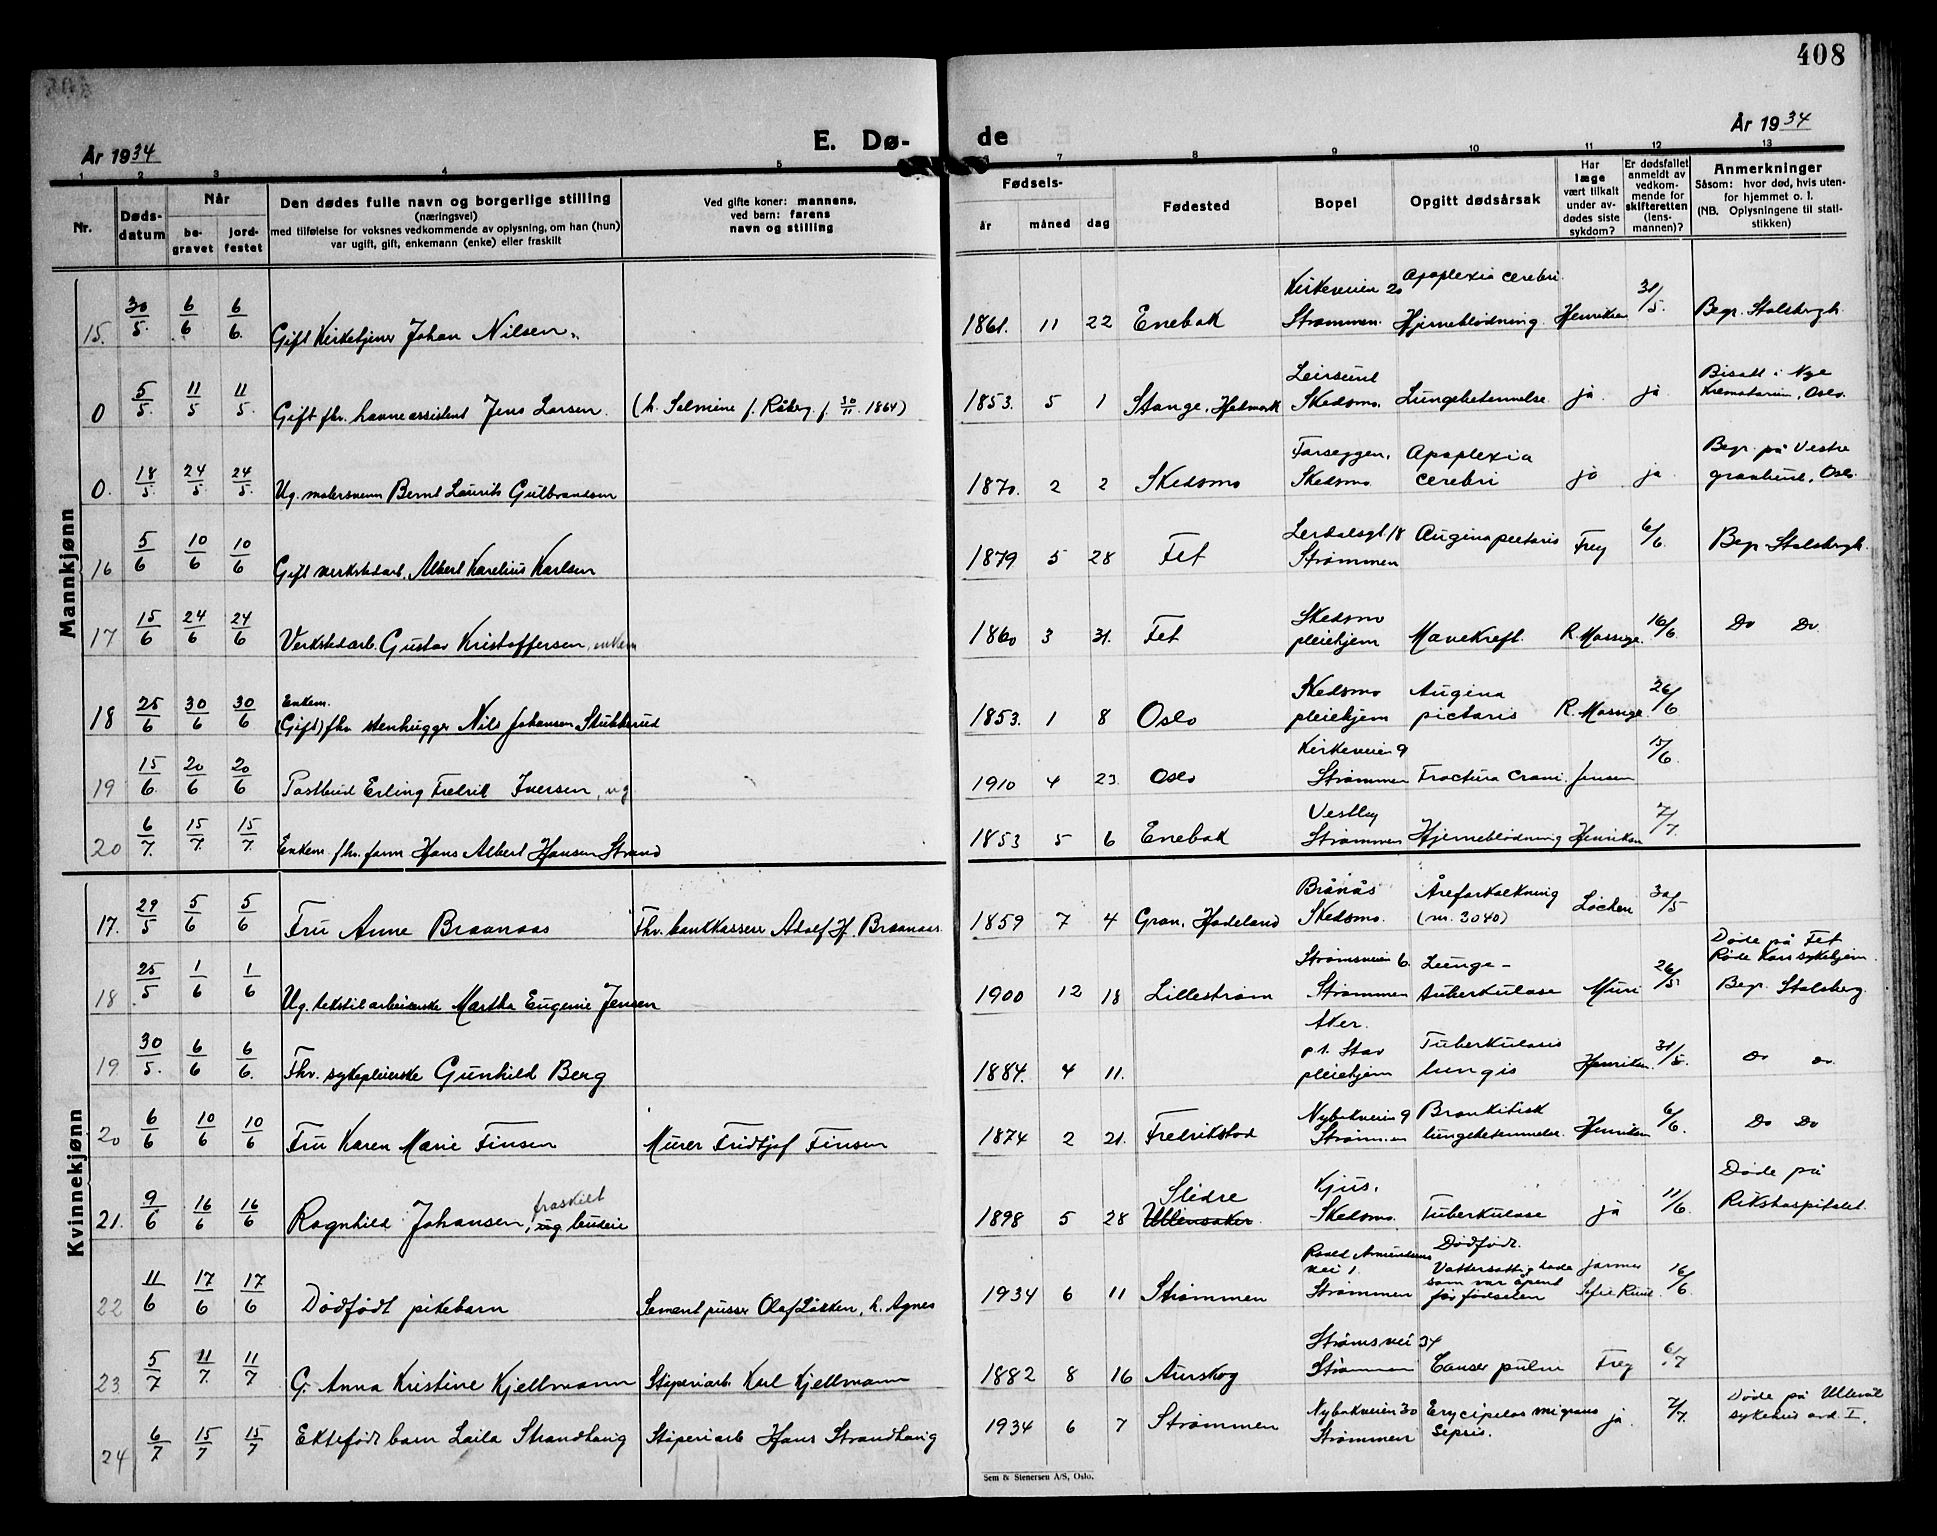 408
År 1934
E. Dø-
de
År 1934
1 2 3 4 5 6 7 8 9 10 11 12 13
Nr.
Døds-
datum
Når
be-
gravet
jord-
festet
Den dødes fulle navn og borgerlige stilling
(næringsvei)
med tilføielse for voksnes vedkommende av oplysning, om han (hun)
var ugift, gift, enkemann (enke) eller fraskilt
Ved gifte koner: mannens,
ved barn: farens
navn og stilling
Fødsels-
år måned dag
Fødested
Bopel
Opgitt dødsårsak
Har
læge
vært tilkalt
under av-
dødes siste
sykdom?
Er dødsfallet
anmeldt av
vedkom-
mende for
skifteretten
(lens-
mannen)?
Anmerkninger
Såsom: hvor død, hvis uten-
for hjemmet o. l.
(NB. Oplysningene til stati-
stikken)
Mannkjønn
15. 30/5. 6/6 6/6. Gift Kirketjener Johan Nilsen. 1861. 11 22 Enebak Kirkeveien 20 Strømmen. Apoplexia cerebri. Hjerneblødning. Henriksen 31/5. Begr. Stalsbergh.
0 5/5. 11/5 11/5. Gift fhv. havneassistent Jens Larsen. (h. Selmine f. Råberg f. 30/11. 1864) 1853. 5 1 Stange, Hedmark Leirsund Skedsmo. Lungebetennelse ja ja. Bisatt i Nye Krematorium, Oslo.
0. 18/5. 24/5 24/5. Ug. malersvenn Bernt Laurits Gulbrandsen 1870. 2 2 Skedsmo Farseggen, Skedsmo. Apoplexia cerebri ja ja Begr. på Vestre gravlund, Oslo.
16 5/6 10/6 10/6 Gift verkstedarb. Albert Karelius Karlsen 1879 5 28 Fet Lerdalsgt 18 Strømmen Angina pectoris Frey 6/6. Begr. Stalsbergh.
17 15/6 24/6 24/6 Verkstedarb. Gustav Kristoffersen, enkem 1860 3 31. Fet Skedsmo pleiehjem Mavekreft. R. Massige. 16/6. Do Do.
18 25/6 30/6 30/6 Enkem. (Gift) fhv. stenhugger Nils Johansen Stubberud 1853. 1 8 Oslo Skedsmo pleiehjem Angina pictoris R. Massige. 26/6
19 15/6. 20/6 20/6 Postbud Erling Fredrik Iversen, ug 1910 4 23. Oslo Kirkeveien 9 Strømmen Fractura Crani. Jensen 15/6.
20 6/7. 15/7. 15/7. Enkem. fhv. form Hans Albert Hansen Strand 1853 5 6 Enebak Vestby Strømmen Hjerneblødning Henriksen 7/7.
Kvinnekjønn
17. 29/5 5/6 5/6 Fru Anne Braanaas Fhv. bankkasserer Adolf H. Braanaas. 1859 7 4 Gran, Hadeland Brånås Skedsmo. Åreforkalkning (nr. 3040) Løchen 30/5
18 25/5 1/6 1/6 Ug. tekstilarbeiderske Martha Eugenie Jensen 1900 12 18 Lillestrøm Strømsveien 6. Strømmen Lunge- tuberkulose Muri 26/5 Døde på Fet Røde Kors sykehjem. Begr. Stalsberg.
19 30/5. 6/6 6/6. Fhv. sykepleierske Gunhild Berg 1884. 4 11. Aker. p.t. Stav pleiehjem Tuberkulosis lungis Henriksen. 31/5. Do Do.
20 6/6 10/6 10/6 Fru Karen Marie Finsen Murer Fridtjof Finsen 1874 2 21. Fredrikstad Nybakveien 9 Strømmen Bronkitisk lungebetennelse. Henriksen 6/6. Do Do
21. 9/6 16/6 16/6 Ragnhild Johansen, fraskilt ug budeie 1898 5 28 Slidre Ullensaker. Kjus, Skedsmo. Tuberkulose ja 11/6. Døde på Rikshospitalet.
22 11/6 17/6 17/6 Dødfødt pikebarn Sementpusser Olaf Løkken, h. Agnes 1934 6 11 Strømmen Roald Amundsens vei 1. Strømmen Dødfødt. Vattersottig hode som var åpent før fødselen jormor Sofie Ruud. 16/6.
23 5/7 11/7. 11/7 G. Anna Kristine Kjellmann Støperiarb. Karl Kjellmann 1882 8 16 Aurskog Strømsvei 34 Strømmen Canser pulm Frey 6/7
24 6/7 15/7 15/7 Ektefødt barn Laila Strandhaug Støperiarb Hans Strandhaug 1934 6 7 Strømmen Nybakveien 30 Strømmen Erycipelas migrans Sepsis. ja. 7/7. Døde på Ullevål sykehus avd. I.
Sem & Stenersen A/S, Oslo.